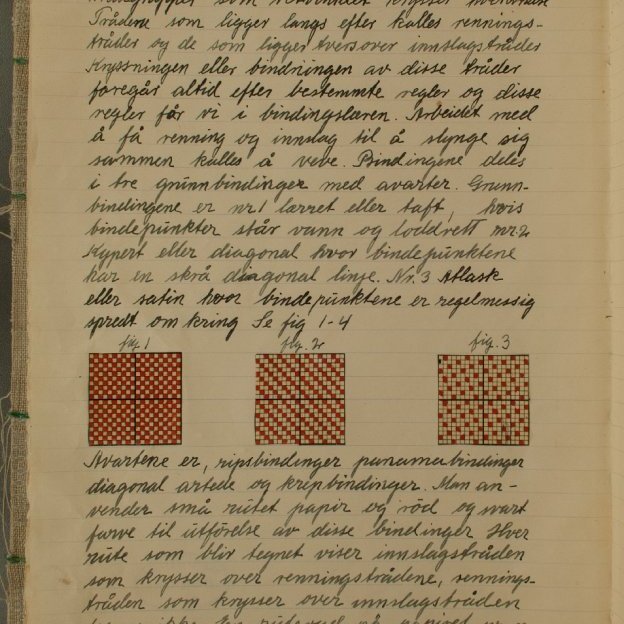 Trådene som ligger langs efter kalles rennings-
tråder og de som ligger tvers over innslagstråder
Kryssningen eller bindningen av disse tråder
foregår altid efter bestemmte regler og disse
regler får vi i bindingslæren. Arbeidet med
å få renning og innslag til å slynge sig
sammen kalles å veve. Bindingene deles
i tre grunnbindinger med avarter. Grunn-
bindingene er nr 1 lærret eller taft, hvis
bindepunkter står vann og loddrett nr. 2
Kypert eller diagonal hvor bindepunktene
har en skrå diagonal linje. Nr. 3 Atlask
eller satin hvor bindepunktene er regelmessig
spredt omkring Se fig 1-4
fig. 1 fig. 2 fig. 3
Avartene er, ripsbindinger panamabindinger
diagonal artede og krepbindinger. Man an-
vender små rutet papir og röd og svart
farve til utförelse av disse bindinger Hver
rute som blir tegnet viser innslagstråden
som krysser over renningstrådene, rennings-
tråden som krysser over innslagstråden